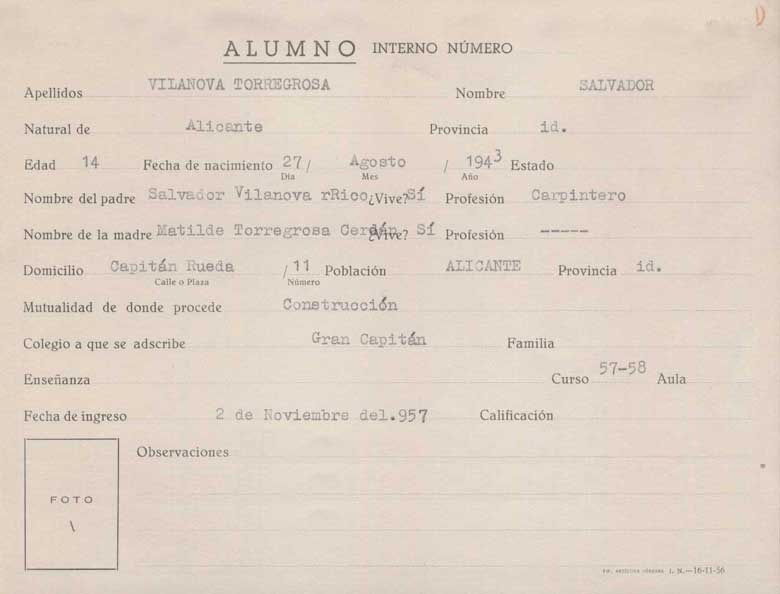 ALUMNO INTERNO NÚMERO
Apellidos VILANOVA TORREGROSA Nombre SALVADOR
Natural de Alicante Provincia id.
Edad 14 Fecha de nacimiento 27 / Agosto / 1943 Estado
Día Mes Año
Nombre del padre Salvador Vilanova rRico ¿Vive? Sí Profesión Carpintero
Nombre de la madre Matilde Torregrosa Cerdán ¿Vive? Sí Profesión -----
Domicilio Capitán Rueda / 11 Población ALICANTE Provincia id.
Calle o Plaza Número
Mutualidad de donde procede Construcción
Colegio a que se adscribe Gran Capitán Familia
Enseñanza Curso 57-58 Aula
Fecha de ingreso 2 de Noviembre del.957 Calificación
Observaciones
FOTO
I. N.—16-11-56